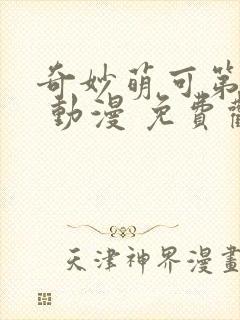 奇妙萌可第
動漫 免費
天津神界漫畫